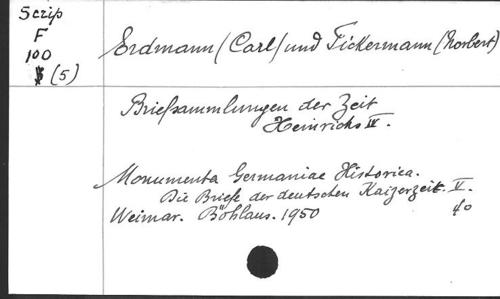 Scrip
F
100
(5)
Erdmann (Carl) und Fickermann (Norbert)
Briefsammlungen der Zeit
Heinrichs IV.
Monumenta Germaniae Historica.
Die Briefe der deutschen Kaiserzeit. V.
Weimar. Böhlaus. 1950
4o